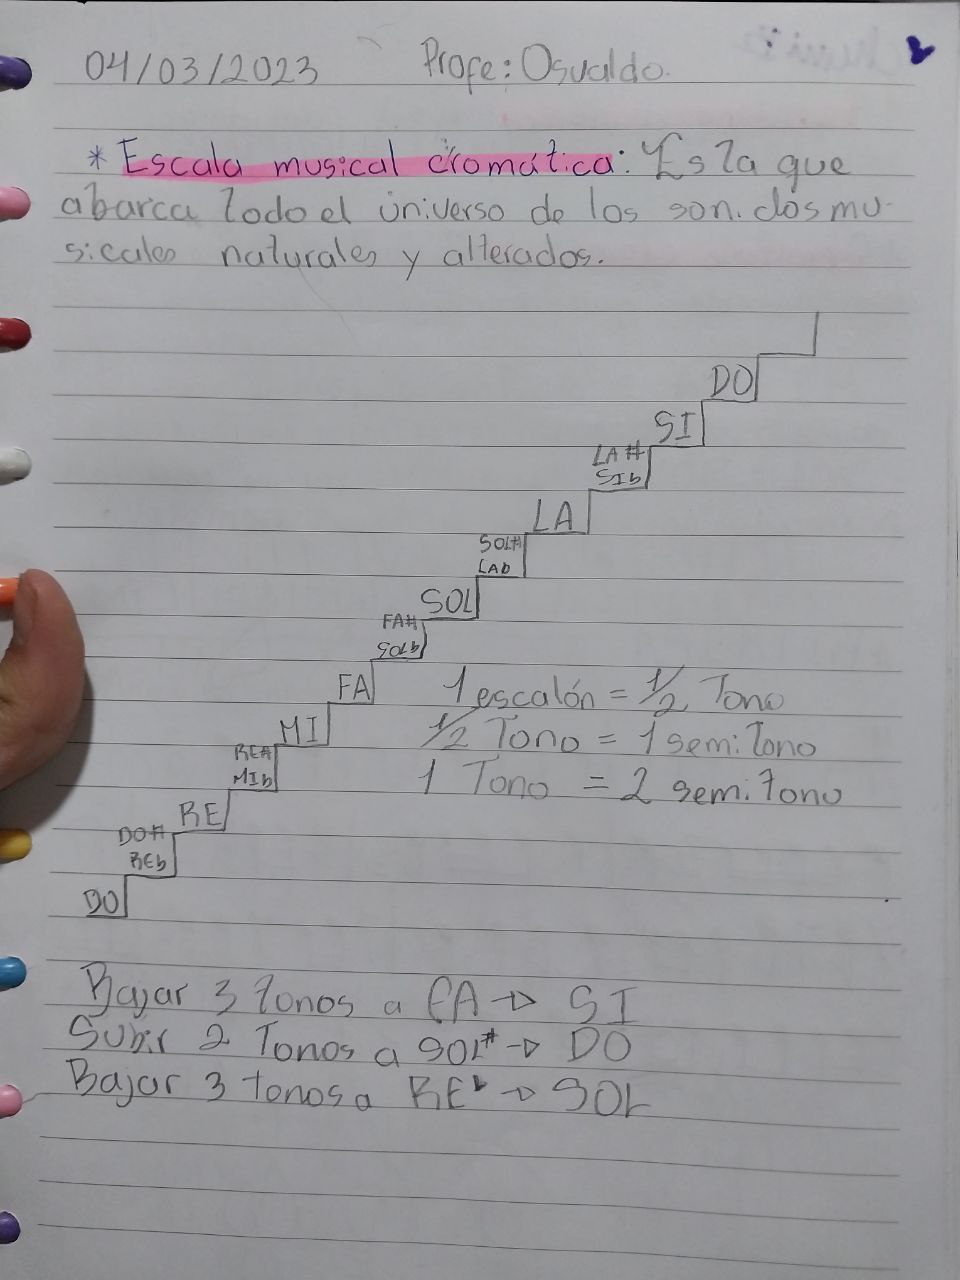 04/03/2023 Profe: Osvaldo.
* Escala musical cromática: Es la que
abarca todo el universo de los sonidos mu-
sicales naturales y alterados.
DO
SI
LA #
SIb
LA
SOL#
LAb
SOL
FA#
SOLb
FA 1 escalón = 1/2 Tono
MI 1/2 Tono = 1 semitono
REA
MIb 1 Tono = 2 semitono
RE
DO#
REb
DO
Bajar 3 tonos a FA → SI
Subir 2 Tonos a SOL# → DO
Bajar 3 tonos a REb → SOL